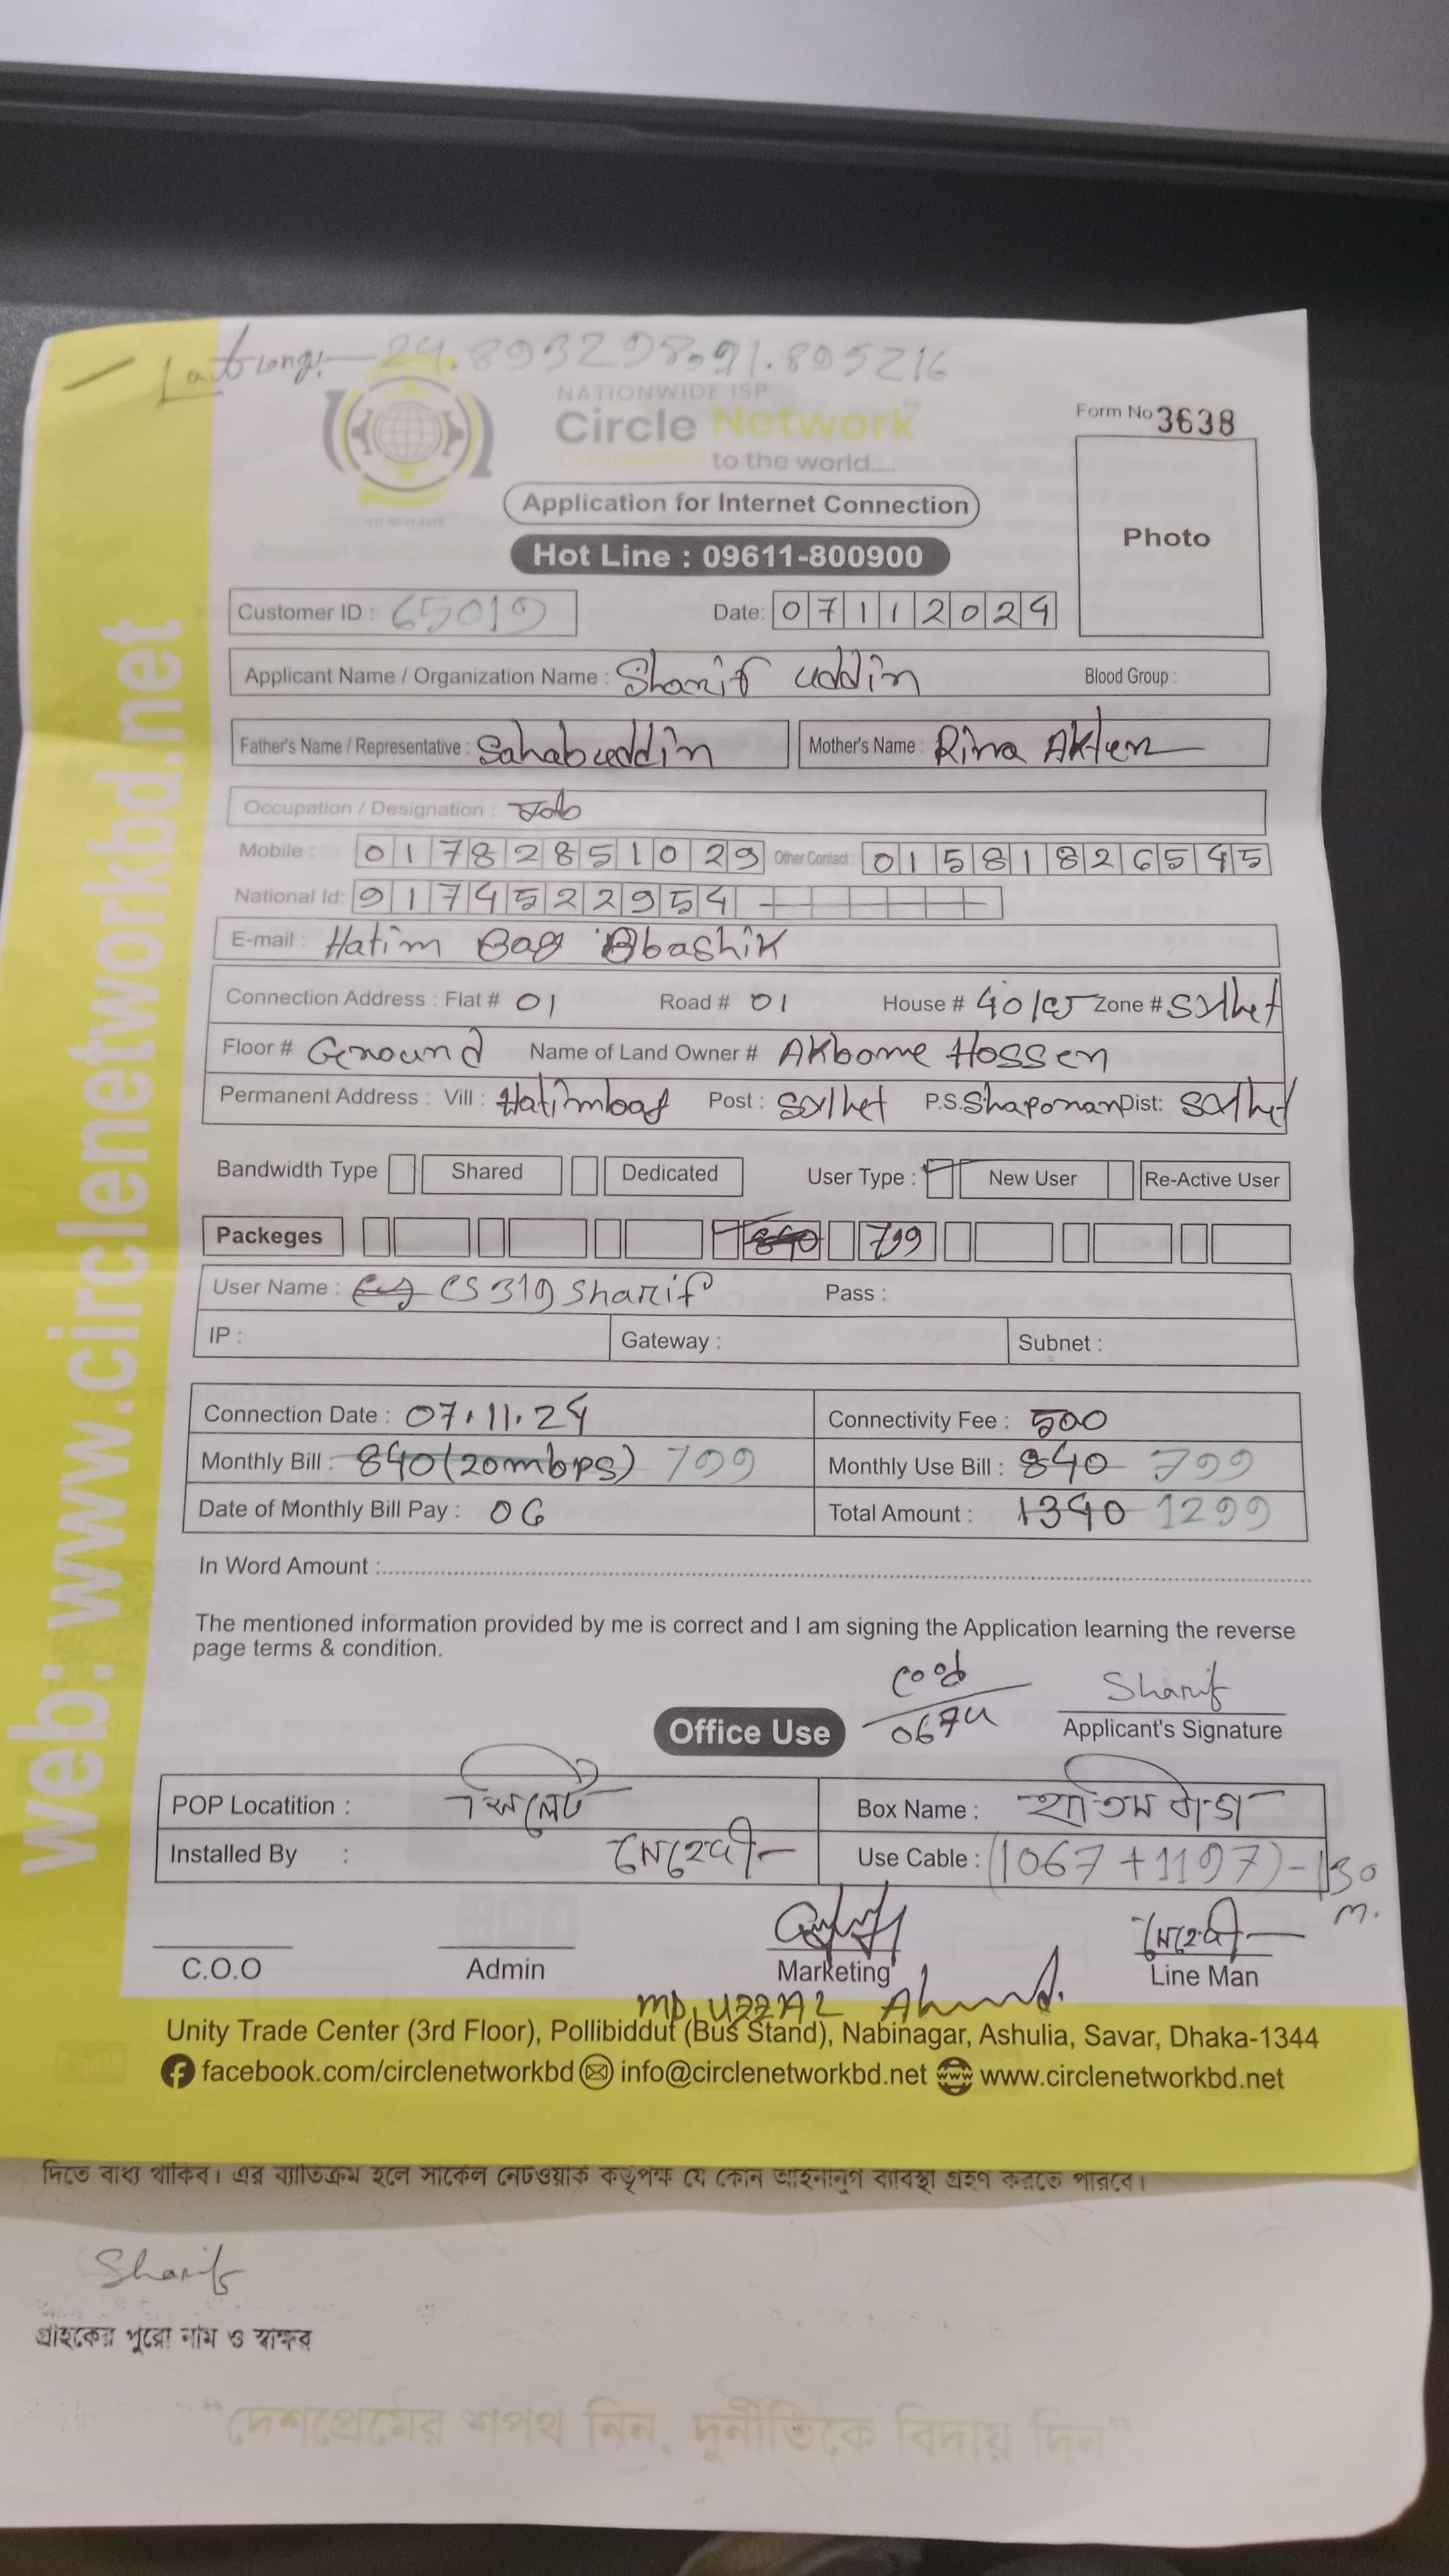 Lat Long:- 24.893298,91.895216
NATIONWIDE ISP
Circle Network
connected to the world.....
Form No 3638
Photo
Application for Internet Connection
Hot Line : 09611-800900
Customer ID : 65019 Date: 07112024
Applicant Name / Organization Name : Sharif uddin Blood Group :
Father's Name / Representative : Sahabuddin Mother's Name : Rina Akter
Occupation / Designation : Job
Mobile : 01782851029 Other Contact : 01581826545
National Id: 9174522954
E-mail : Hatim Bag
Connection Address : Flat # 01 Road # 01 House # 40/ Zone # Sylhet
Floor # Ground Name of Land Owner # Akbome Hossen
Permanent Address : Vill : Hatimbag Post : Sylhet P.S. Shaporan Dist: Sylhet
Bandwidth Type Shared Dedicated User Type : New User Re-Active User
Packeges 840 799
User Name : CS319 Sharif Pass :
IP : Gateway : Subnet :
Connection Date : 07.11.24 Connectivity Fee : 500
Monthly Bill : 840 (20mbps) 799 Monthly Use Bill : 840 799
Date of Monthly Bill Pay : 06 Total Amount : 1340 1299
In Word Amount :
The mentioned information provided by me is correct and I am signing the Application learning the reverse
page terms & condition.
Sharif
Office Use Applicant's Signature
POP Locatition : সিলেট Box Name : হাতিম বাগ
Installed By : মেহেদী Use Cable : (1067+1197)-130
m.
মেহেদী
C.O.O Admin Marketing Line Man
MD. UZZAL Ahmed.
Unity Trade Center (3rd Floor), Pollibiddut (Bus Stand), Nabinagar, Ashulia, Savar, Dhaka-1344
facebook.com/circlenetworkbd info@circlenetworkbd.net www www.circlenetworkbd.net
web: www.circlenetworkbd.net
দিতে বাধ্য থাকিব। এর ব্যতিক্রম হলে সার্কেল নেটওয়ার্ক কর্তৃপক্ষ যে কোন আইনানুগ ব্যবস্থা গ্রহণ করতে পারবে।
Sharif
গ্রাহকের পুরো নাম ও স্বাক্ষর
"দেশপ্রেমের শপথ নিন, দুর্নীতিকে বিদায় দিন"